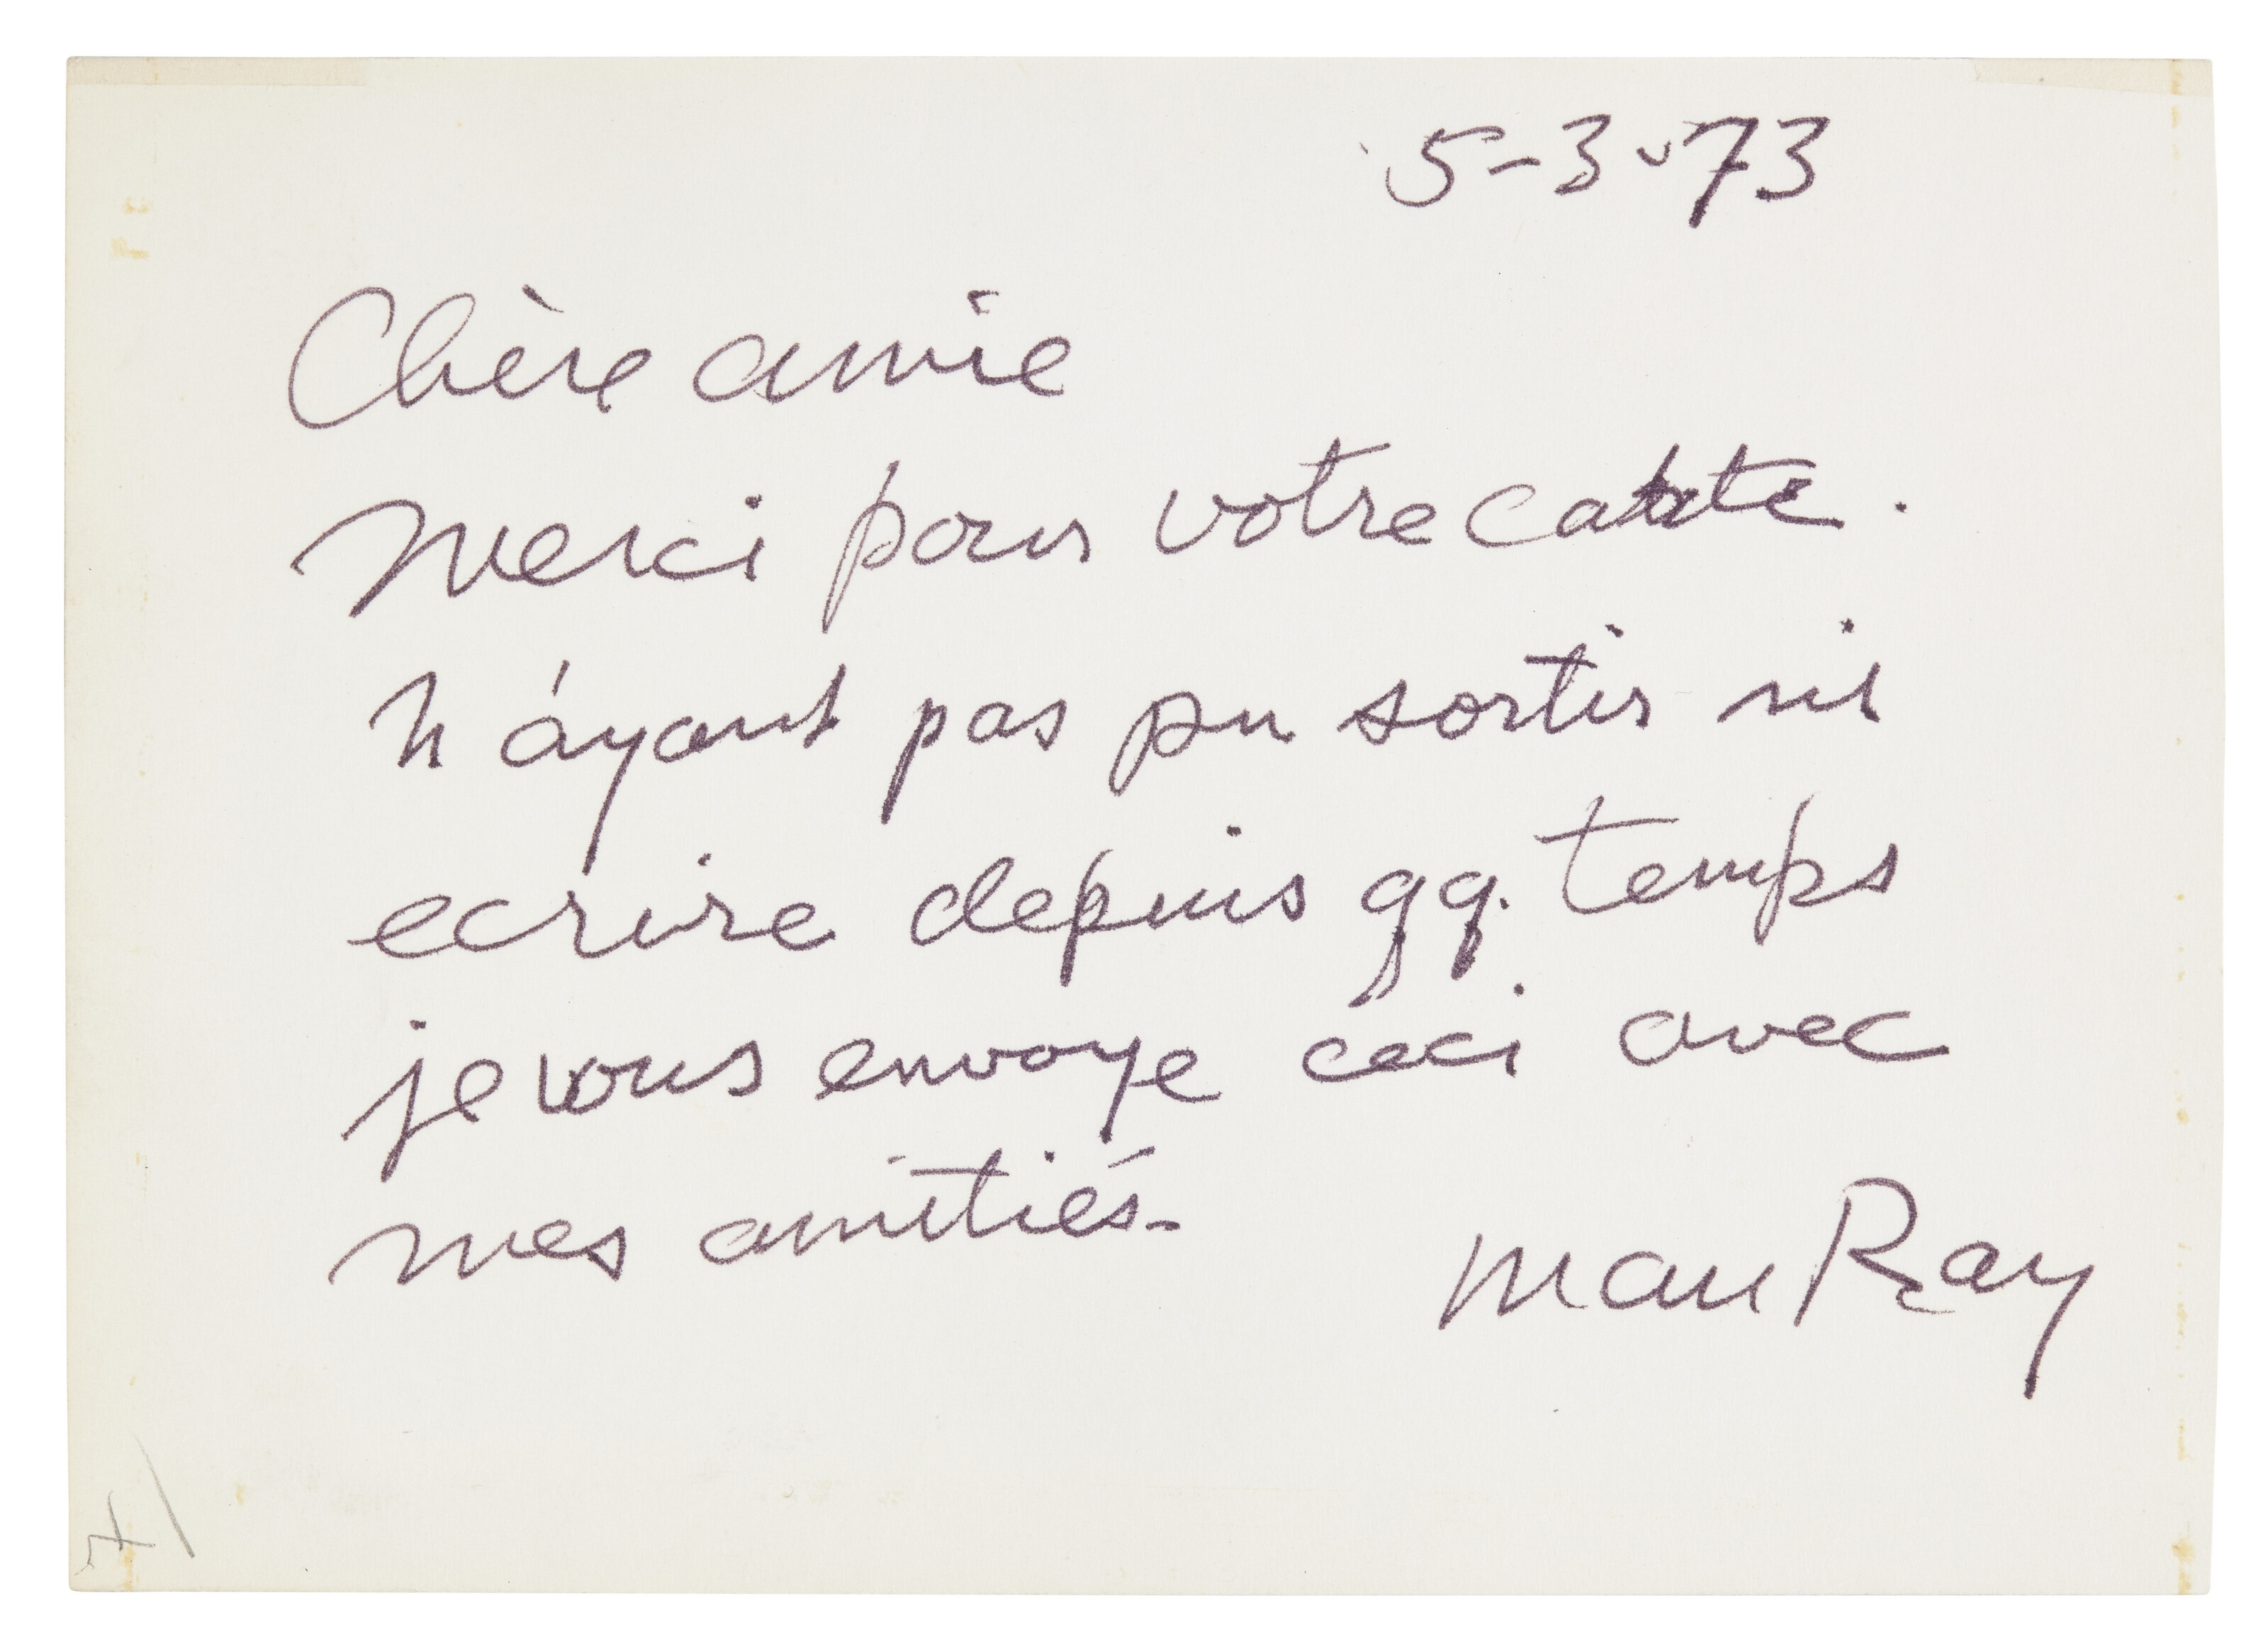 5-3-73
Chère amie
Merci pour votre carte.
N'ayant pas pu sortir ni
ecrire depuis qq. temps
je vous envoye ceci avec
mes amitiés-
Man Ray